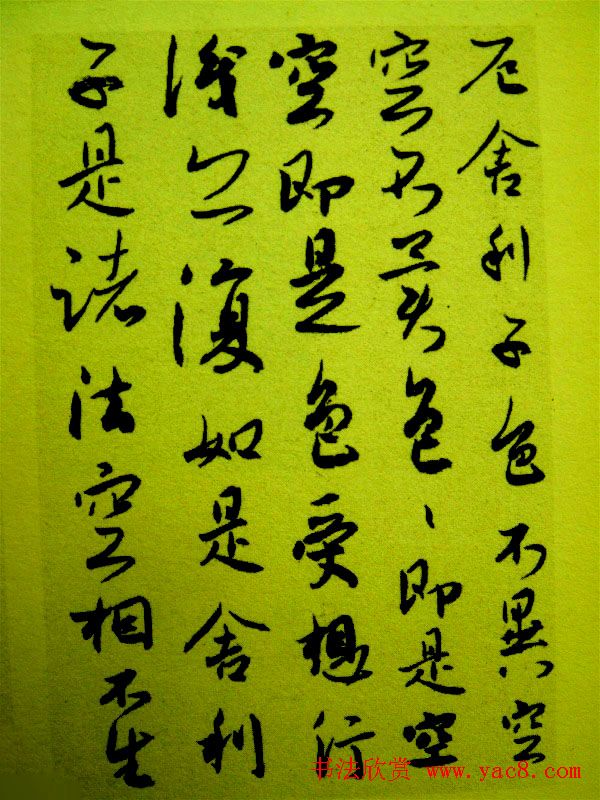 厄舍利子色不異空
空不異色〻即是空
空即是色受想行
識亦復如是舍利
子是諸法空相不生
书法欣赏 www.yac8.com